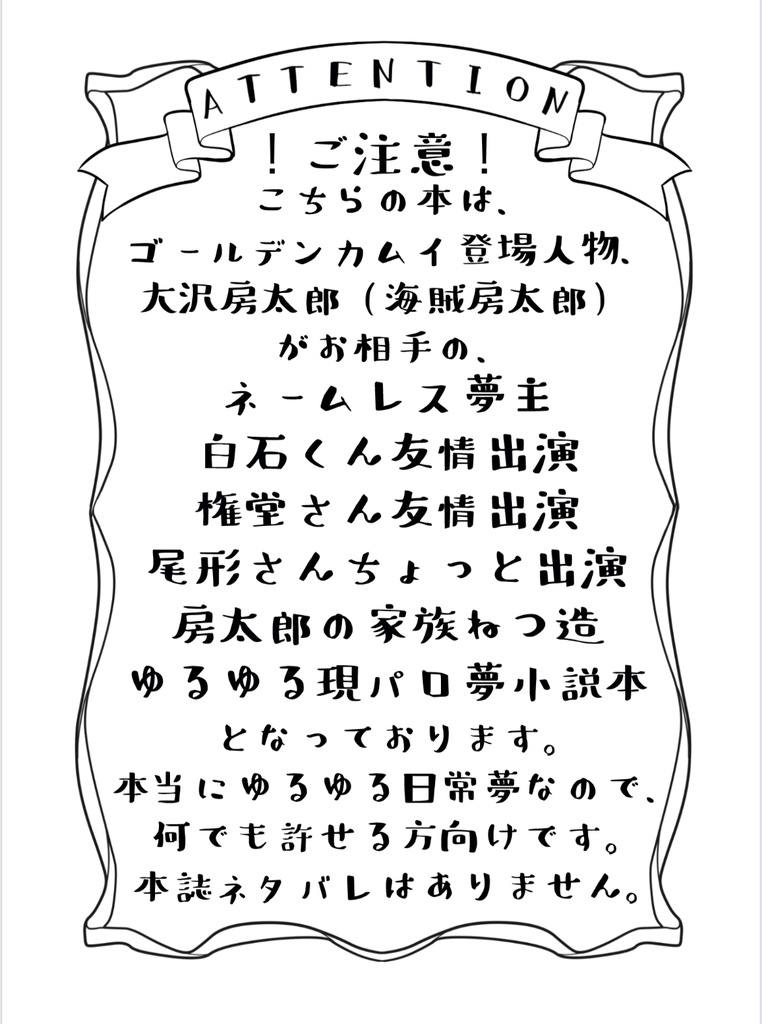 ATTENTION
！ご注意！
こちらの本は、
ゴールデンカムイ登場人物、
大沢房太郎（海賊房太郎）
がお相手の、
ネームレス夢主
白石くん友情出演
権堂さん友情出演
尾形さんちょっと出演
房太郎の家族ねつ造
ゆるゆる現パロ夢小説本
となっております。
本当にゆるゆる日常夢なので、
何でも許せる方向けです。
本誌ネタバレはありません。